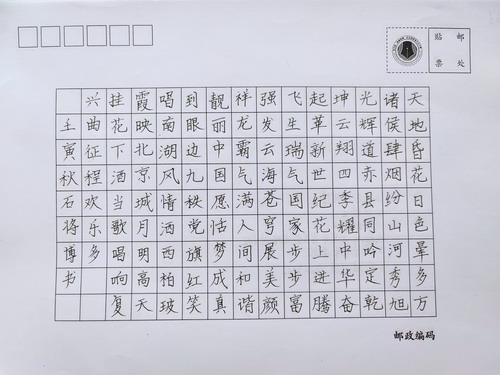 天地昏花日色晕多方
诸侯肆烟纷山河秀旭
光辉道赤县同吟定乾
坤云翔四季耀中华奋
起革新世纪花上进腾
飞生瑞气国家步步富
强发云海苍穹展美颜
祥龙霸气满人间和谐
靓丽中国愿恬梦成真
到眼边九秩党旗红笑
唱南湖风情洒西柏玻
霞映北京城月明高天
挂花下洒当歌唱响复
兴曲征程欢乐多
壬寅秋石将博书
贴票
邮处
邮政编码